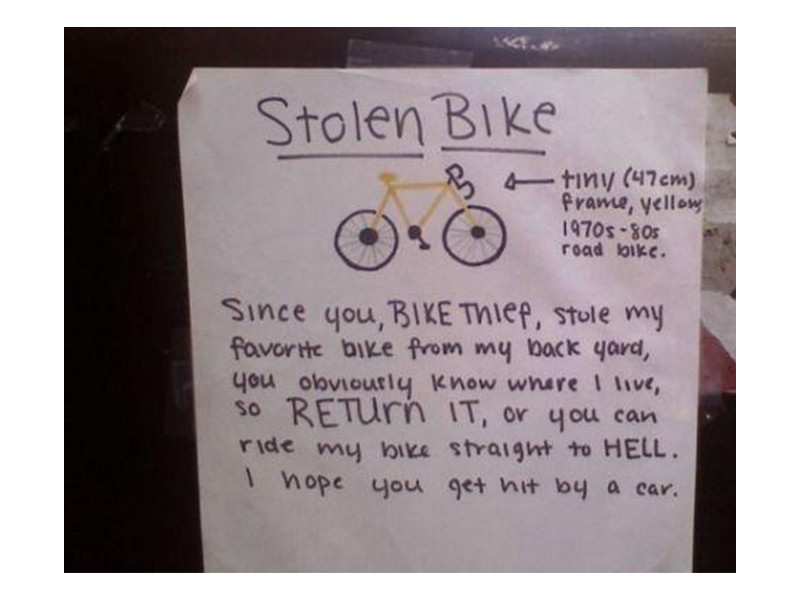 Stolen Bike
tiny (47cm)
frame, yellow
1970s-80s
road bike.
Since you, BIKE THIEF, stole my
favorite bike from my back yard,
you obviously know where I live,
so RETURN IT, or you can
ride my bike straight to HELL.
I hope you get hit by a car.